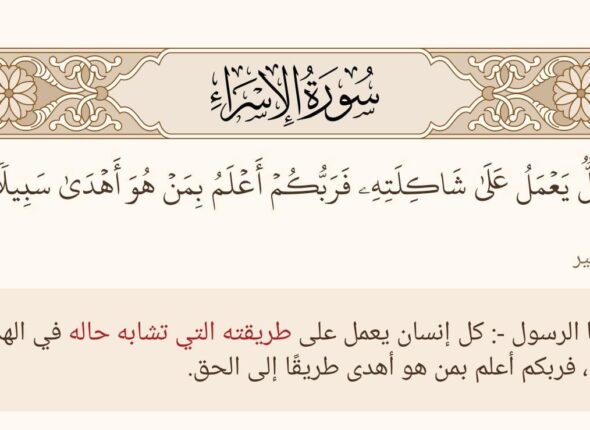 سُورَةُ الإِسْرَاءِ
يَعْمَلُ عَلَىٰ شَاكِلَتِهِۦ فَرَبُّكُمْ أَعْلَمُ بِمَنْ هُوَ أَهْدَىٰ سَبِيلًا
الرسول -: كل إنسان يعمل على طريقته التي تشابه حاله في
، فربكم أعلم بمن هو أهدى طريقًا إلى الحق.